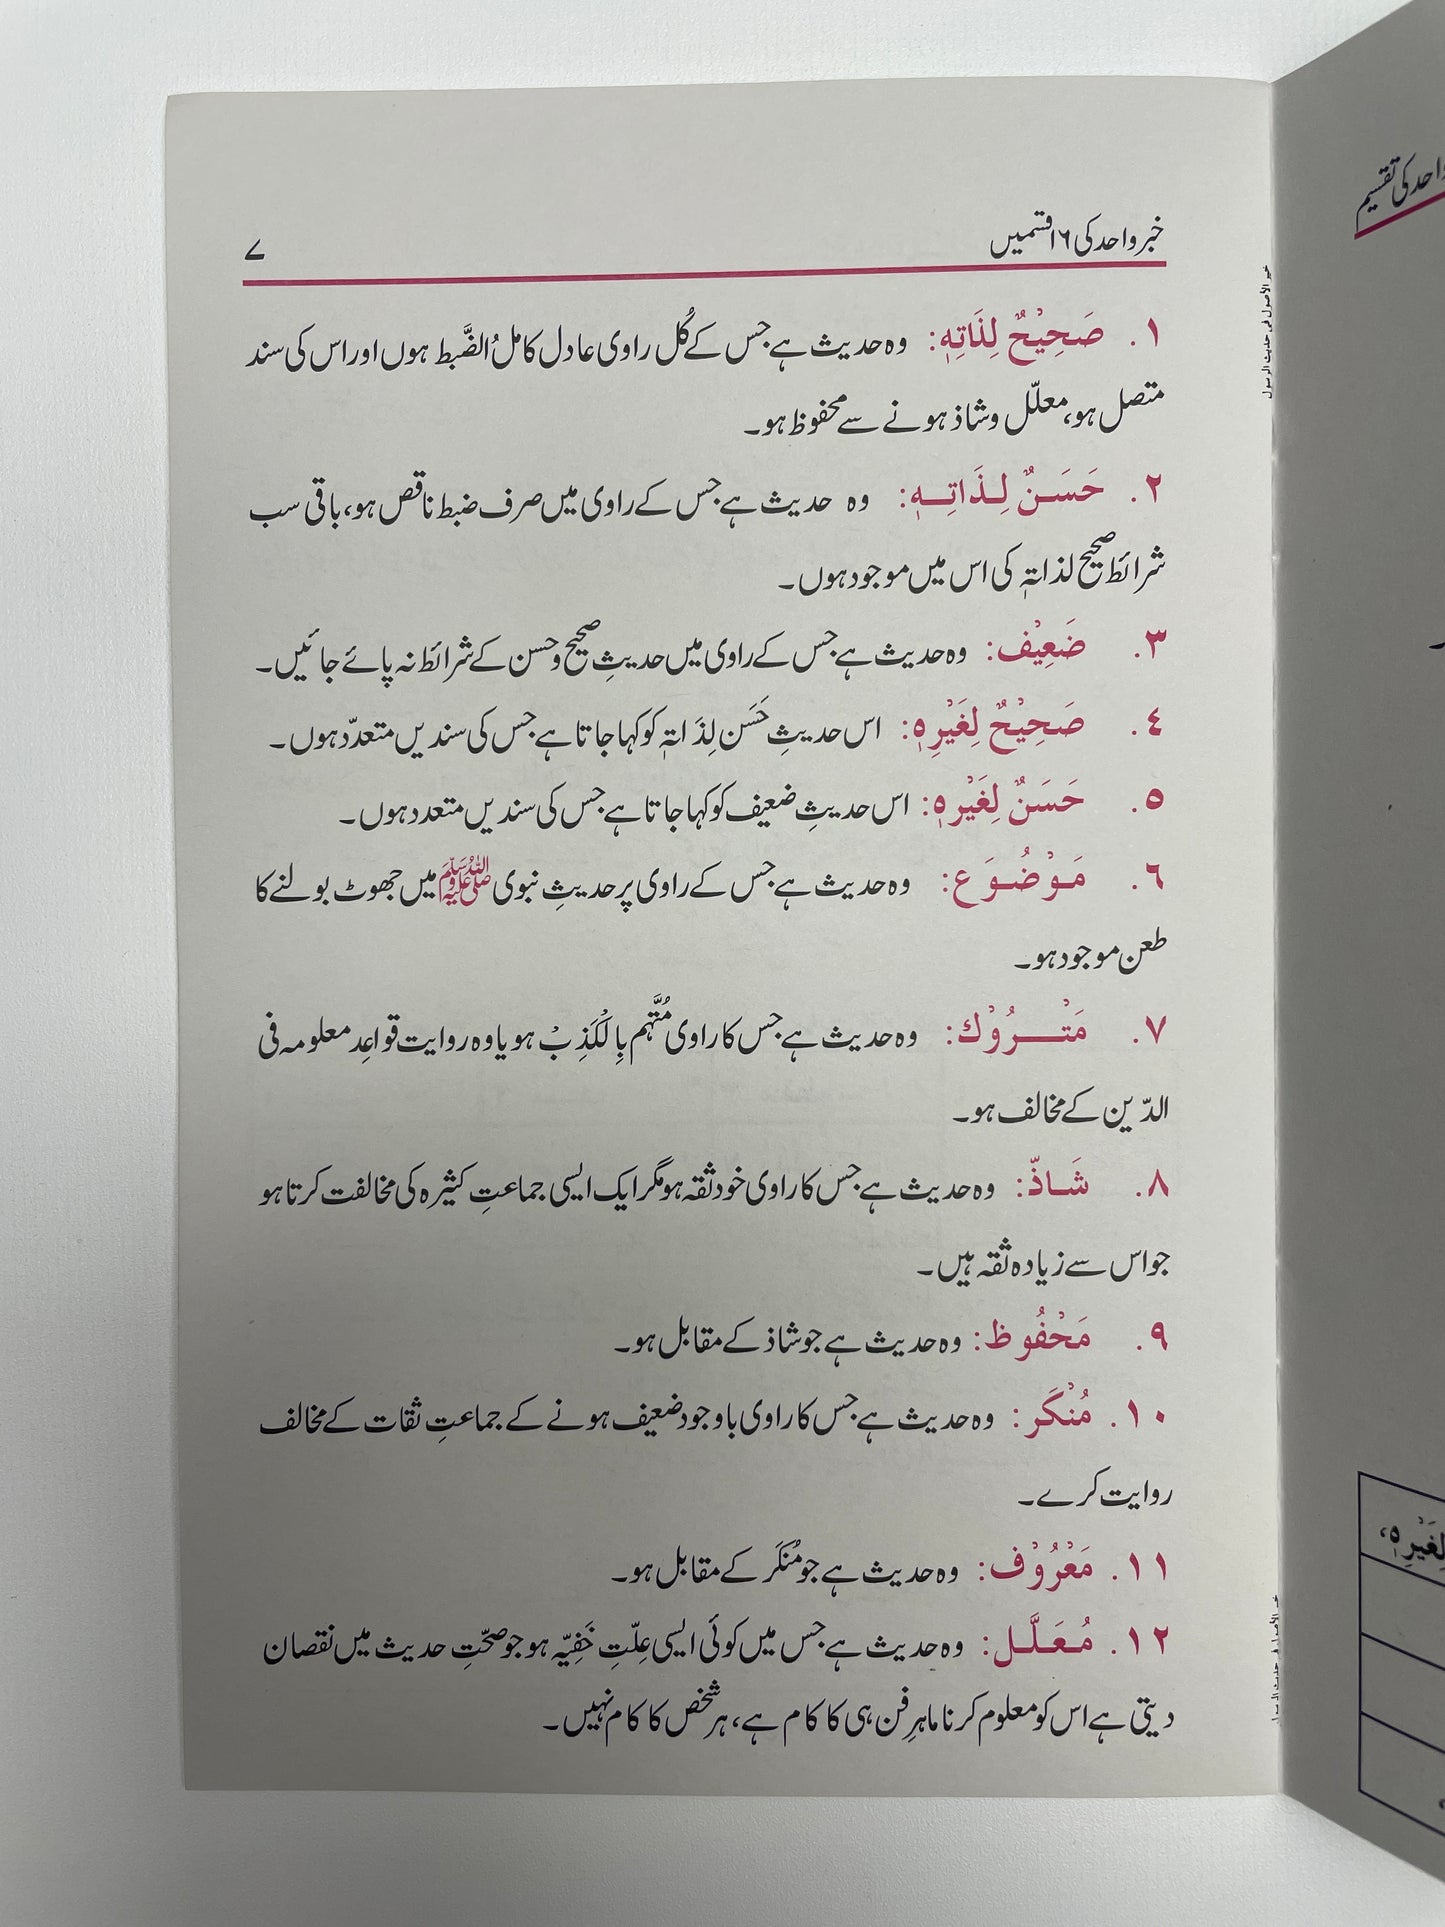 خبر واحد کی ١٦ قسمیں
٧
١. صَحِیْحٌ لِذَاتِہٖ: وہ حدیث ہے جس کے کُل راوی عادل کاملُ الضَّبط ہوں اور اس کی سند
متصل ہو، معلّل و شاذ ہونے سے محفوظ ہو۔
٢. حَسَنٌ لِذَاتِہٖ: وہ حدیث ہے جس کے راوی میں صرف ضبط ناقص ہو، باقی سب
شرائط صحیح لذاتہٖ کی اس میں موجود ہوں۔
٣. ضَعِیْف: وہ حدیث ہے جس کے راوی میں حدیثِ صحیح و حسن کے شرائط نہ پائے جائیں۔
٤. صَحِیْحٌ لِغَیْرِہٖ: اس حدیثِ حَسَن لِذَاتہٖ کو کہا جاتا ہے جس کی سندیں متعدّد ہوں۔
٥. حَسَنٌ لِغَیْرِہٖ: اس حدیثِ ضعیف کو کہا جاتا ہے جس کی سندیں متعدد ہوں۔
٦. مَوْضُوَع: وہ حدیث ہے جس کے راوی پر حدیثِ نبوی ﷺ میں جھوٹ بولنے کا
طعن موجود ہو۔
٧. مَتْرُوْك: وہ حدیث ہے جس کا راوی مُتَّہم بِالْکَذِبْ ہو یا وہ روایت قواعِد معلومہ فی
الدّین کے مخالف ہو۔
٨. شَاذّ: وہ حدیث ہے جس کا راوی خود ثقہ ہو مگر ایک ایسی جماعتِ کثیرہ کی مخالفت کرتا ہو
جو اس سے زیادہ ثقہ ہیں۔
٩. مَحْفُوظ: وہ حدیث ہے جو شاذ کے مقابل ہو۔
١٠. مُنْکَر: وہ حدیث ہے جس کا راوی باوجود ضعیف ہونے کے جماعتِ ثقات کے مخالف
روایت کرے۔
١١. مَعْرُوْف: وہ حدیث ہے جو مُنکَر کے مقابل ہو۔
١٢. مُعَلَّل: وہ حدیث ہے جس میں کوئی ایسی عِلّتِ خَفِیّہ ہو جو صحّتِ حدیث میں نقصان
دیتی ہے اس کو معلوم کرنا ماہرِ فن ہی کا کام ہے، ہر شخص کا کام نہیں۔
خیر الأصول فی حدیث الرسول
واحد کی تقسیم
لِغَیْرِہٖ،